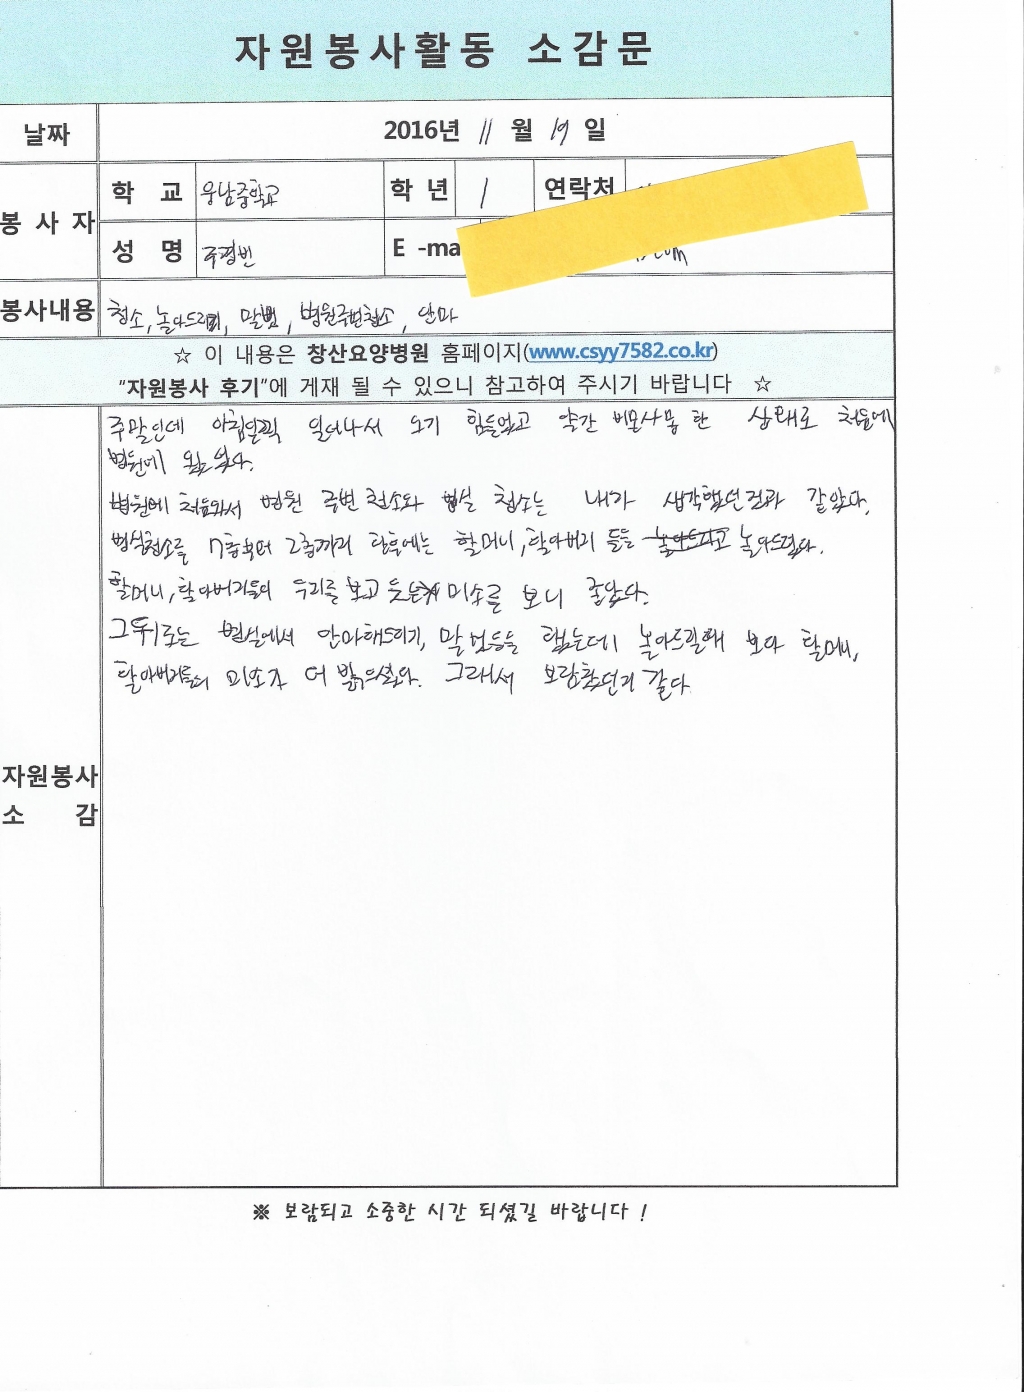 자원봉사활동 소감문
날짜 2016년 11 월 19 일
봉사자 학 교 웅남중학교 학년 1 연락처
성 명 주평빈 E -ma com
봉사내용 청소, 놀아드리기, 말벗, 병원주변청소, 안마
☆ 이 내용은 창산요양병원 홈페이지(www.csyy7582.co.kr)
"자원봉사 후기"에 게재 될 수 있으니 참고하여 주시기 바랍니다 ☆
주말인데 아침일찍 일어나서 오기 힘들었고 약간 비몽사몽 한 상태로 처음에
병원에 왔다.
병원에 처음와서 병원 주변 청소와 병실 청소는 내가 생각했던것과 같았다.
병실청소를 7층부터 2층까지 한후에는 할머니, 할아버지 들을 놀아드렸다.
할머니, 할아버지들의 우리를 보고 웃는 미소를 보니 좋았다.
그뒤로는 병실에서 안마해드리기, 말벗등을 했는데 놀아드릴때 보다 할머니,
할아버지들의 미소가 더 밝으셨다. 그래서 보람찼던거 같다
자원봉사
소 감
※ 보람되고 소중한 시간 되셨길 바랍니다 !